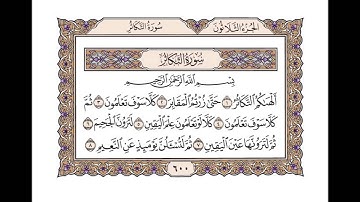 الجزء الثلاثون
سورة التكاثر
سُورَةُ التَّكَاثُرِ
بِسْمِ اللَّهِ الرَّحْمَٰنِ الرَّحِيمِ
أَلْهَاكُمُ التَّكَاثُرُ ١ حَتَّىٰ زُرْتُمُ الْمَقَابِرَ ٢ كَلَّا سَوْفَ تَعْلَمُونَ ٣ ثُمَّ
كَلَّا سَوْفَ تَعْلَمُونَ ٤ كَلَّا لَوْ تَعْلَمُونَ عِلْمَ الْيَقِينِ ٥ لَتَرَوُنَّ الْجَحِيمَ ٦
ثُمَّ لَتَرَوُنَّهَا عَيْنَ الْيَقِينِ ٧ ثُمَّ لَتُسْأَلُنَّ يَوْمَئِذٍ عَنِ النَّعِيمِ ٨
٦٠٠